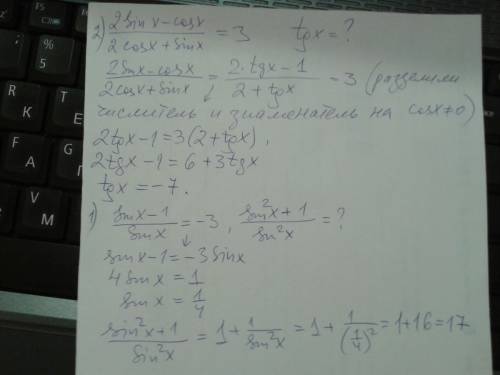 2) (2sinx-cosx)/(2cosx+sinx) = 3 tgx = ?
(2sinx-cosx)/(2cosx+sinx) = (2·tgx-1)/(2+tgx) = 3 (разделили
числитель и знаменатель на cosx≠0)
2tgx-1=3(2+tgx),
2tgx-1=6+3tgx
tgx=-7.
1) (sinx-1)/sinx = -3, (sin²x+1)/sin²x = ?
sinx-1=-3sinx
4sinx=1
sinx=1/4
(sin²x+1)/sin²x = 1+1/sin²x = 1+1/(1/4)² = 1+16=17